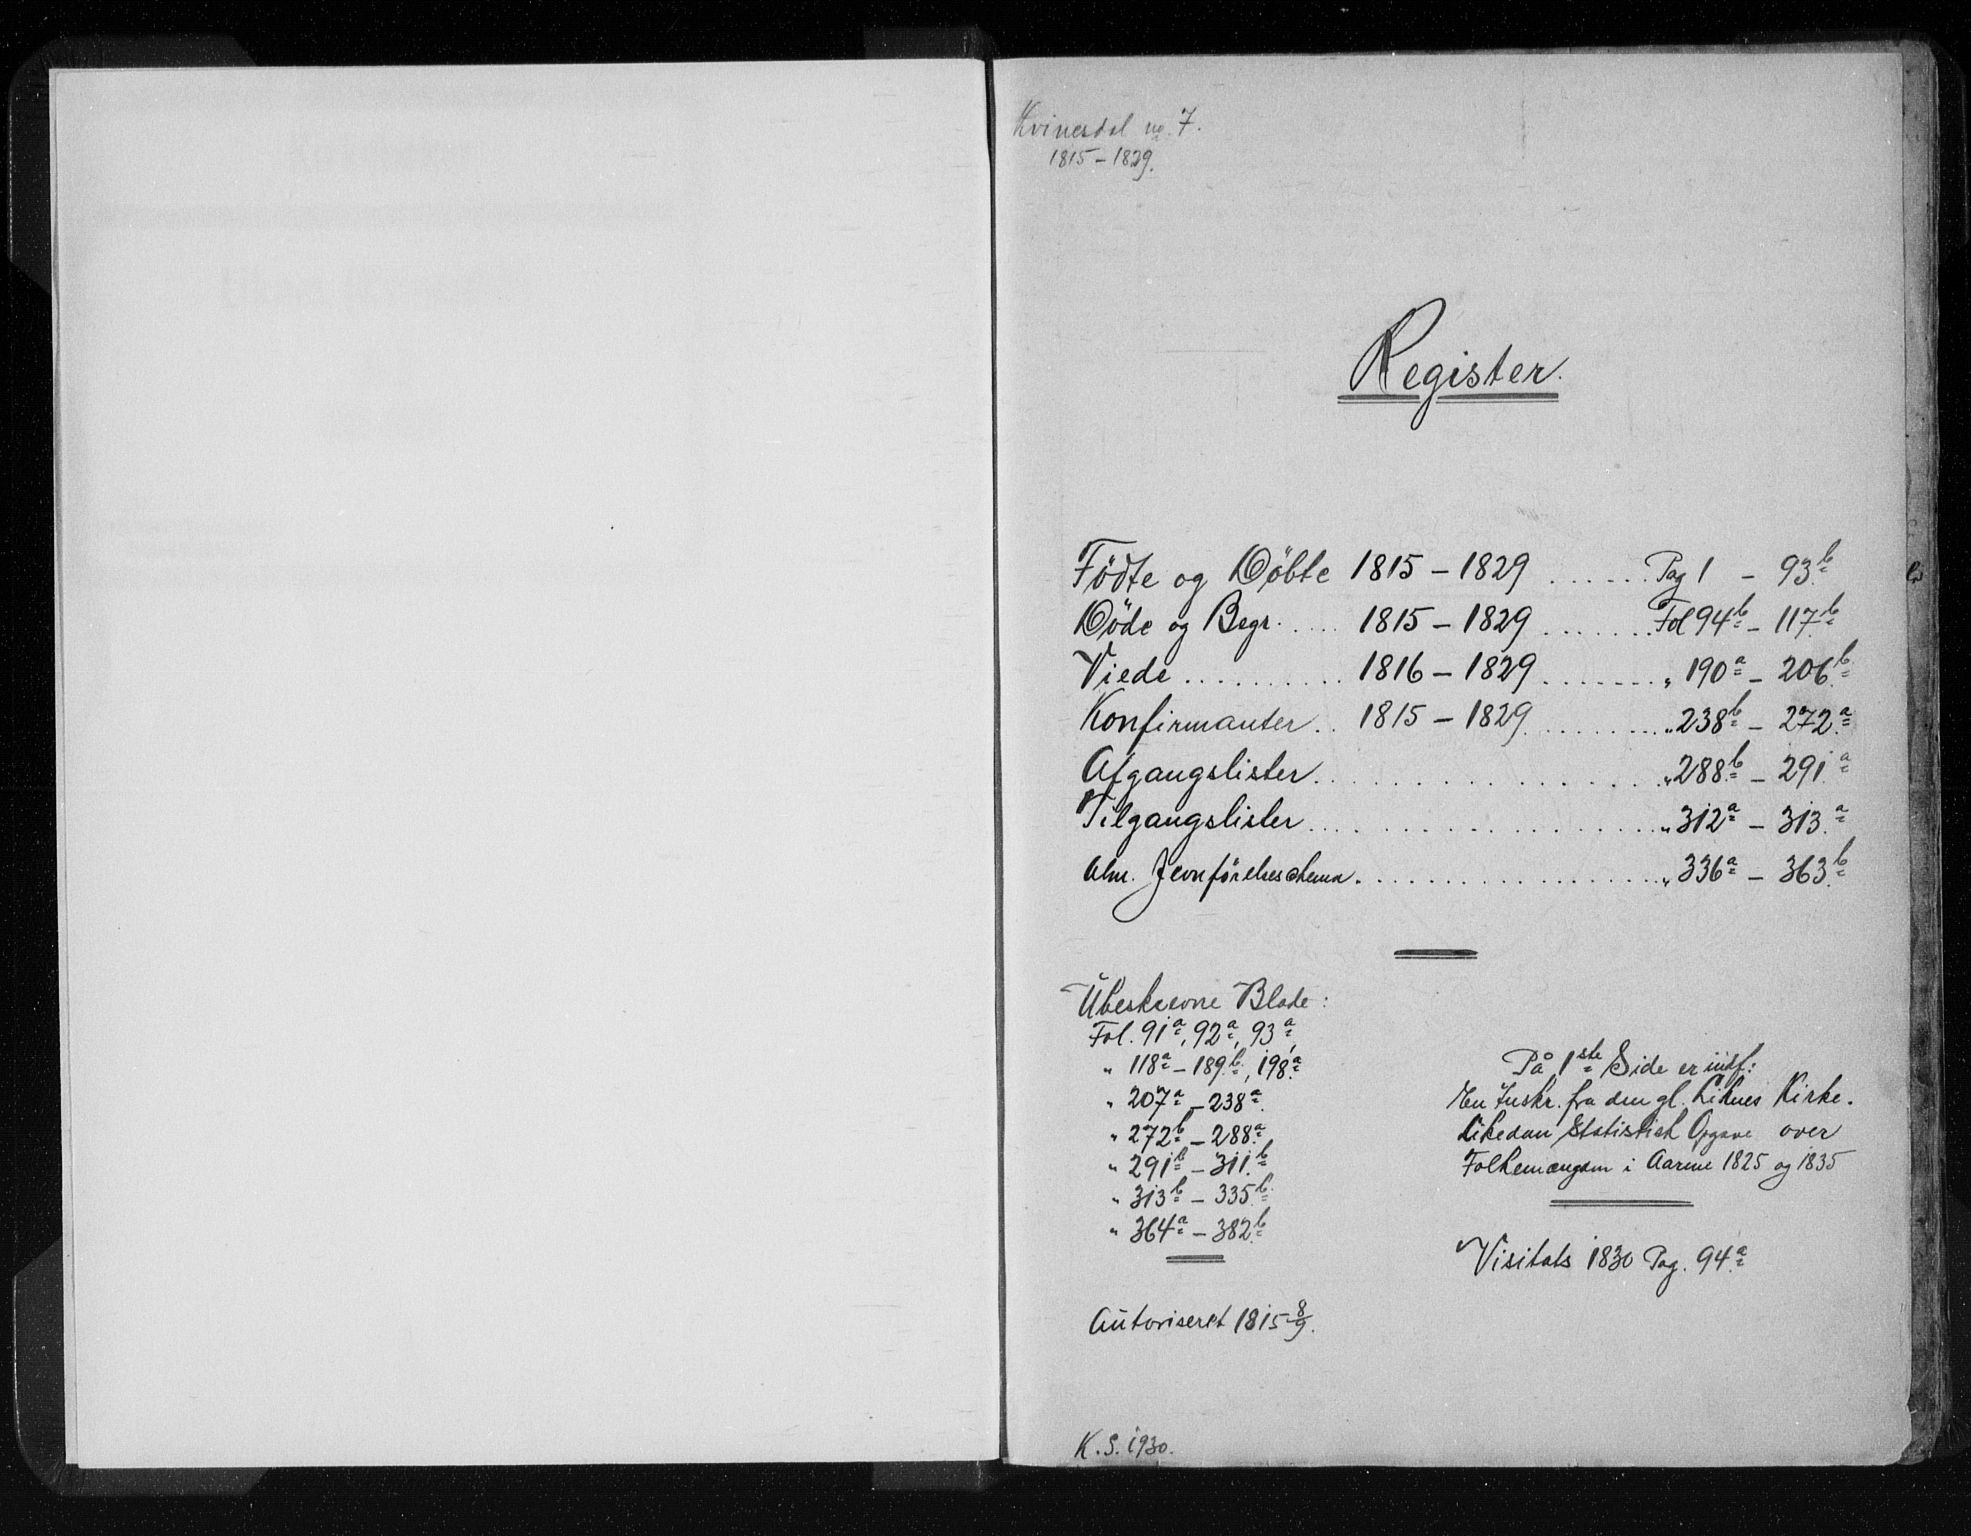 Kvinesdal no. 7.
1815 – 1829.
Register.
Födte og Döbte 1815 – 1829 ...... Pag 1 – 93b
Döde og Begr. .... 1815 – 1829 ....... Fol 94b – 117b
Viede .......... 1816 – 1829 ....... „ 190a – 206b
Konfirmanter .. 1815 – 1829 ........ „ 238b – 272a
Afgangslister ............... „ 288b – 291a
Tilgangslister ............... „ 312a – 313a
Alm. Jevnförelseschema ............... „ 336a – 363b
Ubeskrevne Blade :
Fol. 91a, 92a, 93a,
„ 118a – 189b, 198a
„ 207a – 238a
„ 272b – 288a
„ 291b – 311b
„ 313b – 335b
„ 364a – 382b
Autoriseret 1815 8/9.
På 1ste Side er indf:
En Inskr. fra den gl. Liknes Kirke.
Likedan Statistisk Opgave over
Folkemængden i Aarene 1825 og 1835
Visitats 1830 Pag. 94a
K. S. 1930.